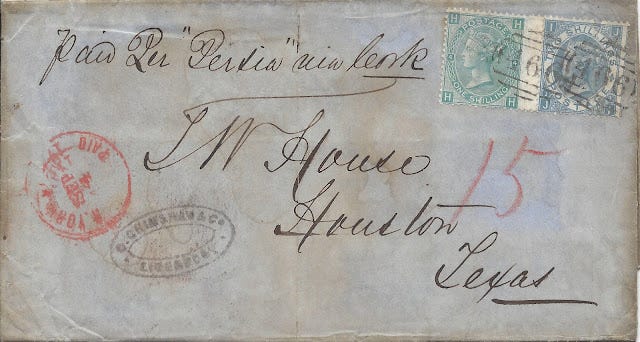 Paid Per "Persia" via Cork
H POSTAGE H
ONE SHILLING
H H
TWO SHILLINGS
T W House
15
Houston
Texas
N. YORK
PAID
GRIMSHAW & Co.
LIVERPOOL